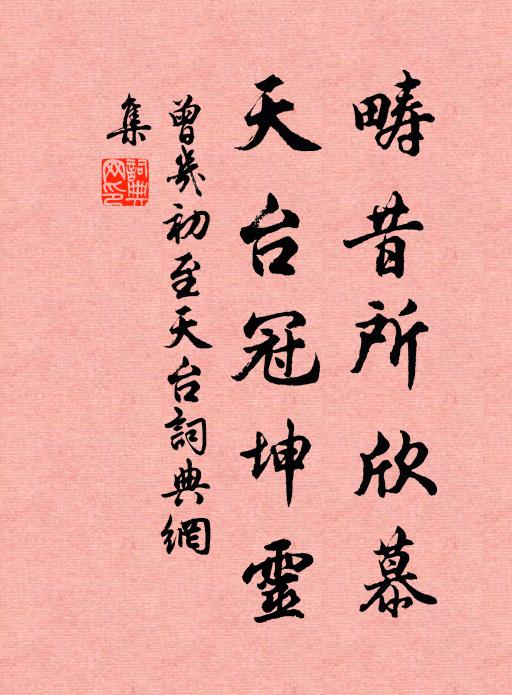 疇昔所欣慕
天台冠坤靈
曾幾初至天台詞典網
集
詞典
网印